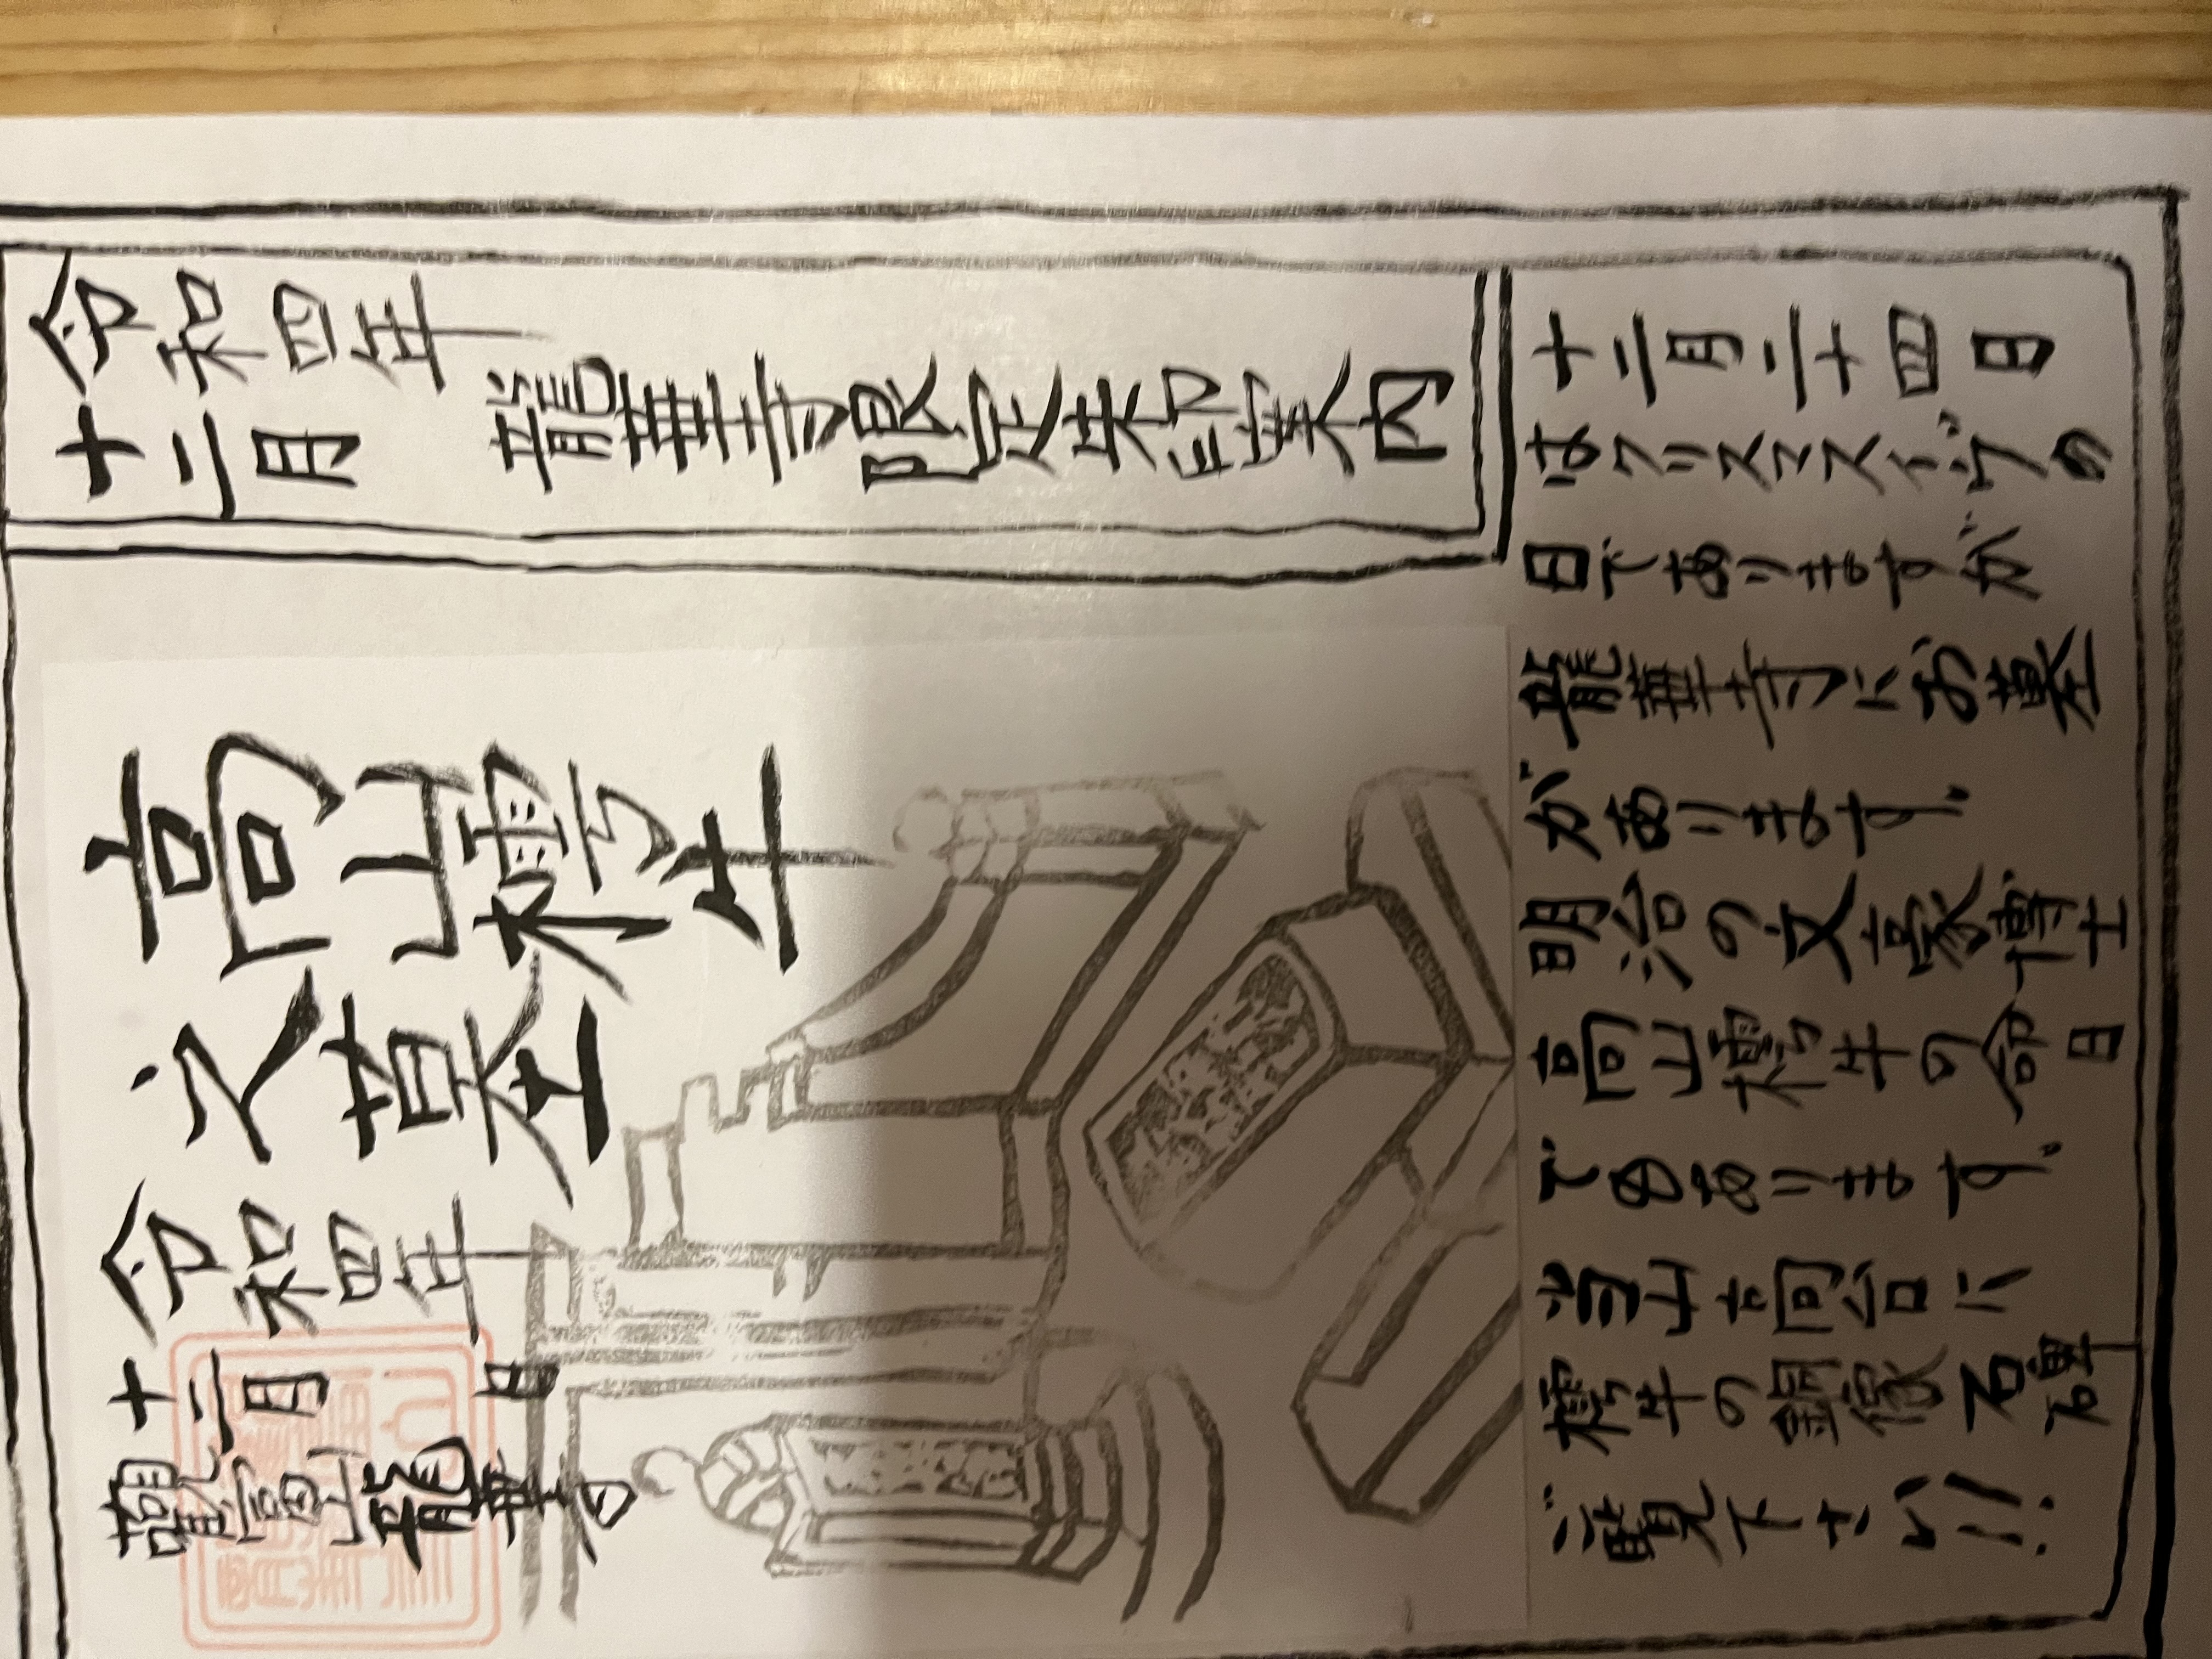 令和四年
十二月
龍華寺限定朱印案内
高山樗牛
之墓
令和四年
十二月　日
觀富山龍華寺
十二月二十四日
はクリスマスイヴの
日でありますが
龍華寺にお墓
があります。
明治の文豪博士
高山樗牛の命日
でもあります。
当山高台に
樗牛の銅像石碑
ご覧下さい!!